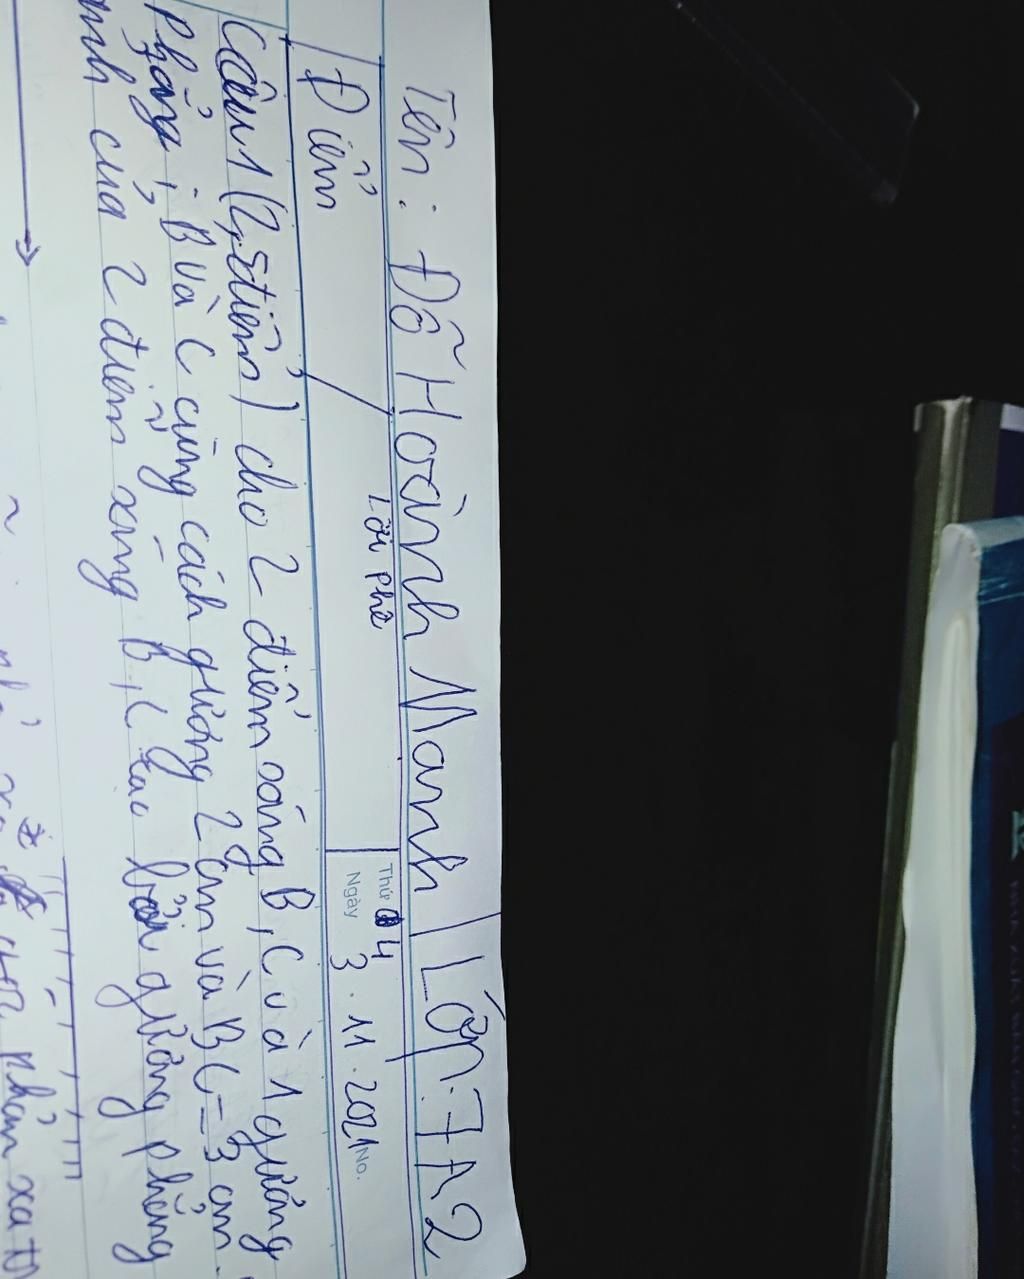 Tên: Đỗ Hoành Mạnh Lớp: 7A2
Điểm Lời phê Thứ 4
Ngày 3.11.2021 No.
Câu 1 (2,5 điểm) cho 2 điểm sáng B, C và 1 gương
phẳng, B và C cùng cách gương 2 cm và BC = 3 cm.
ảnh của 2 điểm xáng B, C tạo bởi gương phẳng